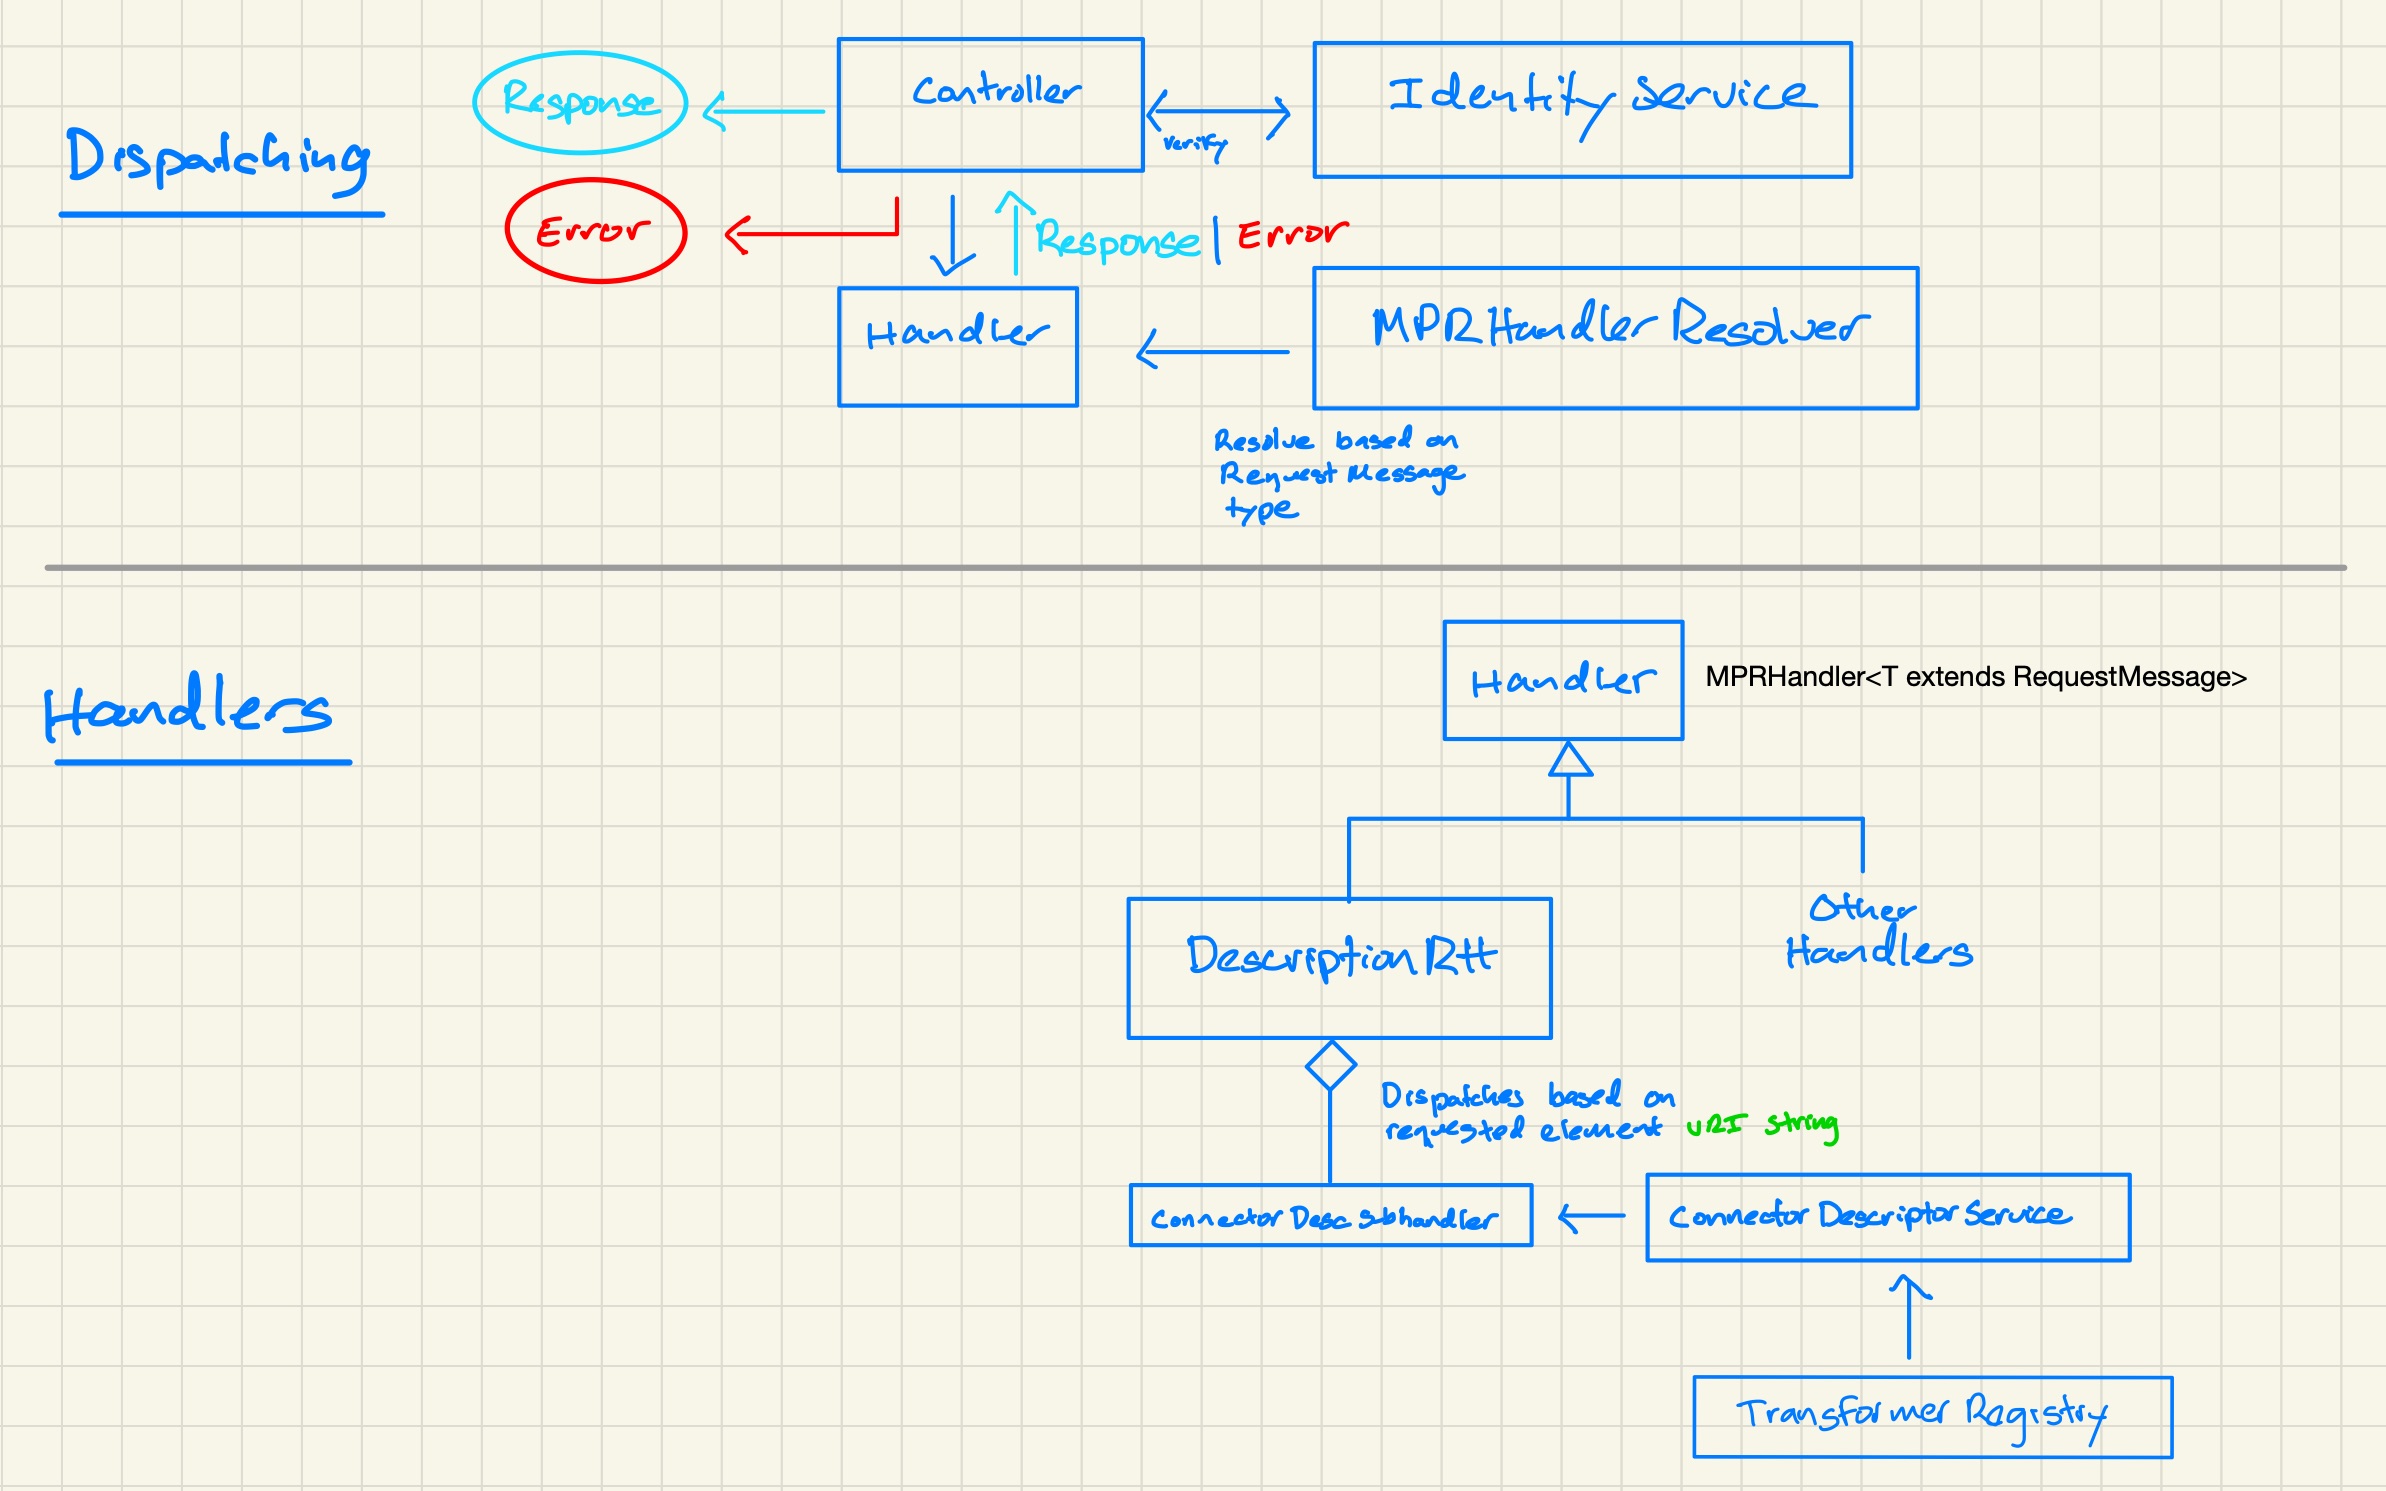 Dispatching
Response
Controller
Identity Service
verify
Error
Response | Error
Handler
MPRHandlerResolver
Resolve based on
Request Message
type
Handlers
Handler
MPRHandler<T extends RequestMessage>
DescriptionRH
Other
Handlers
Dispatches based on
requested element URI string
Connector Desc Sbhandler
Connector Descriptor Service
Transformer Registry